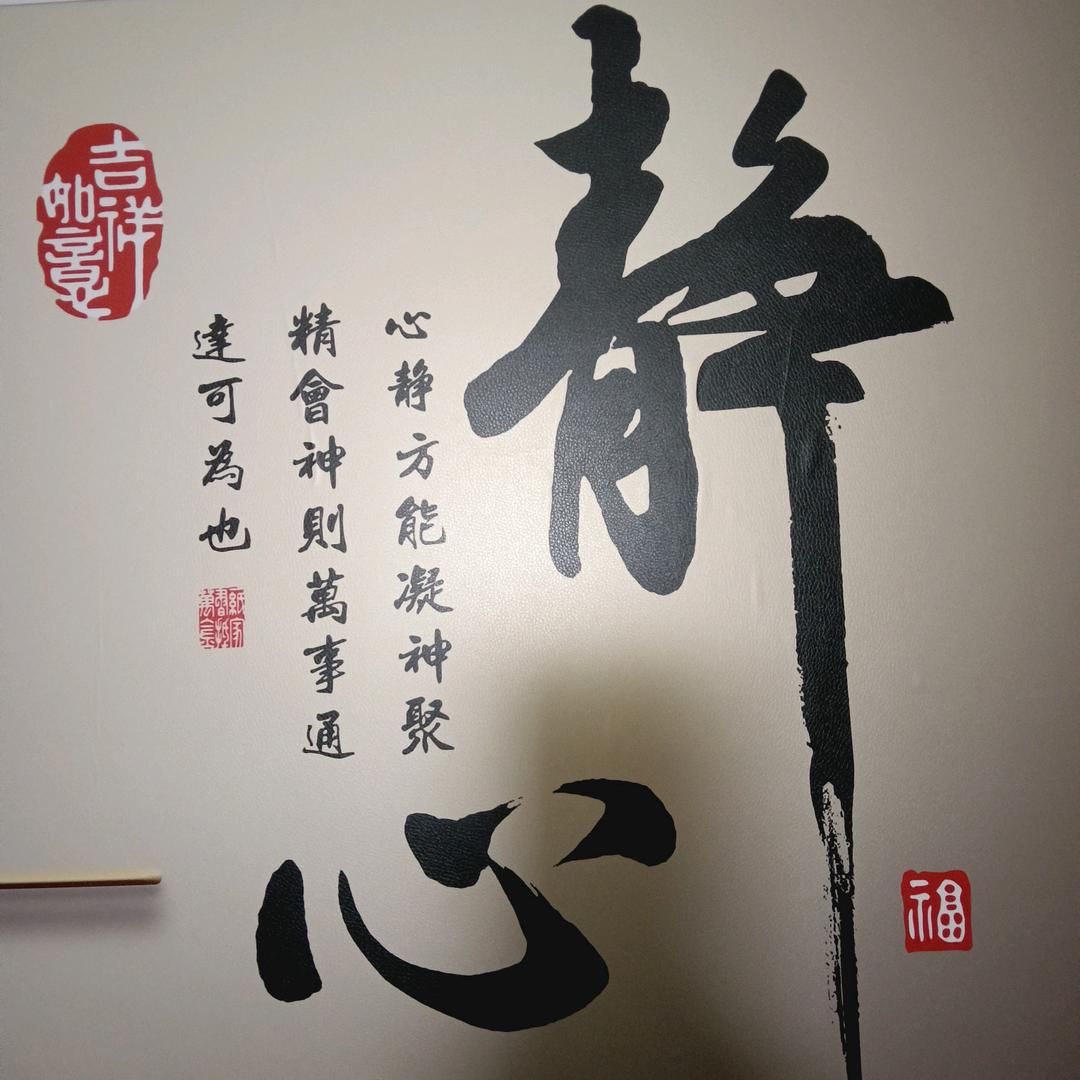 静心
心静方能凝神聚
精會神則萬事通
達可為也
吉祥如意
福